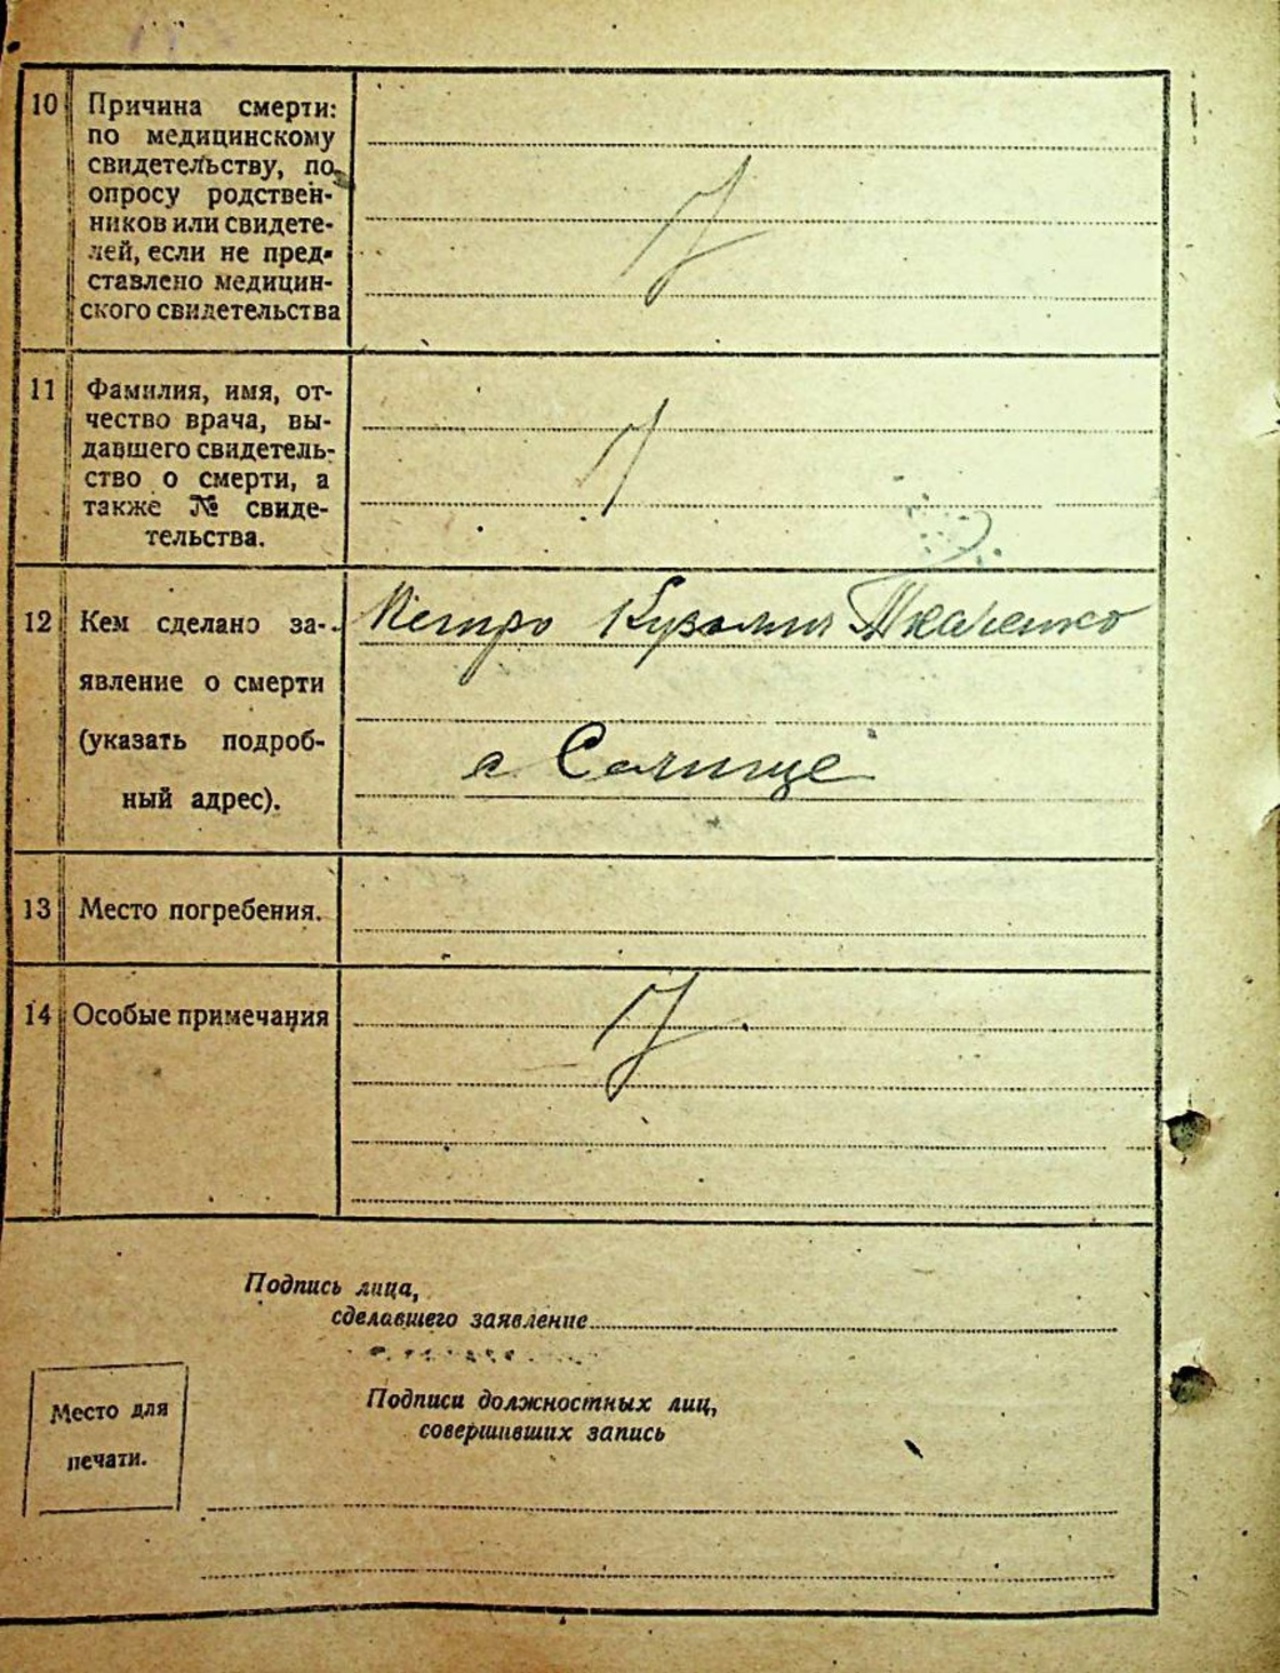 10 Причина смерти:
по медицинскому
свидетельству, по
опросу родствен-
ников или свидете-
лей, если не пред-
ставлено медицин-
ского свидетельства
11 Фамилия, имя, от-
чество врача, вы-
давшего свидетель-
ство о смерти, а
также № свиде-
тельства.
12 Кем сделано за-
явление о смерти
(указать подроб-
ный адрес).
Петро Кузьмич Ткаченко
с
13 Место погребения.
14 Особые примечания
Подпись лица,
сделавшего заявление
Подписи должностных лиц,
совершивших запись
Место для
печати.